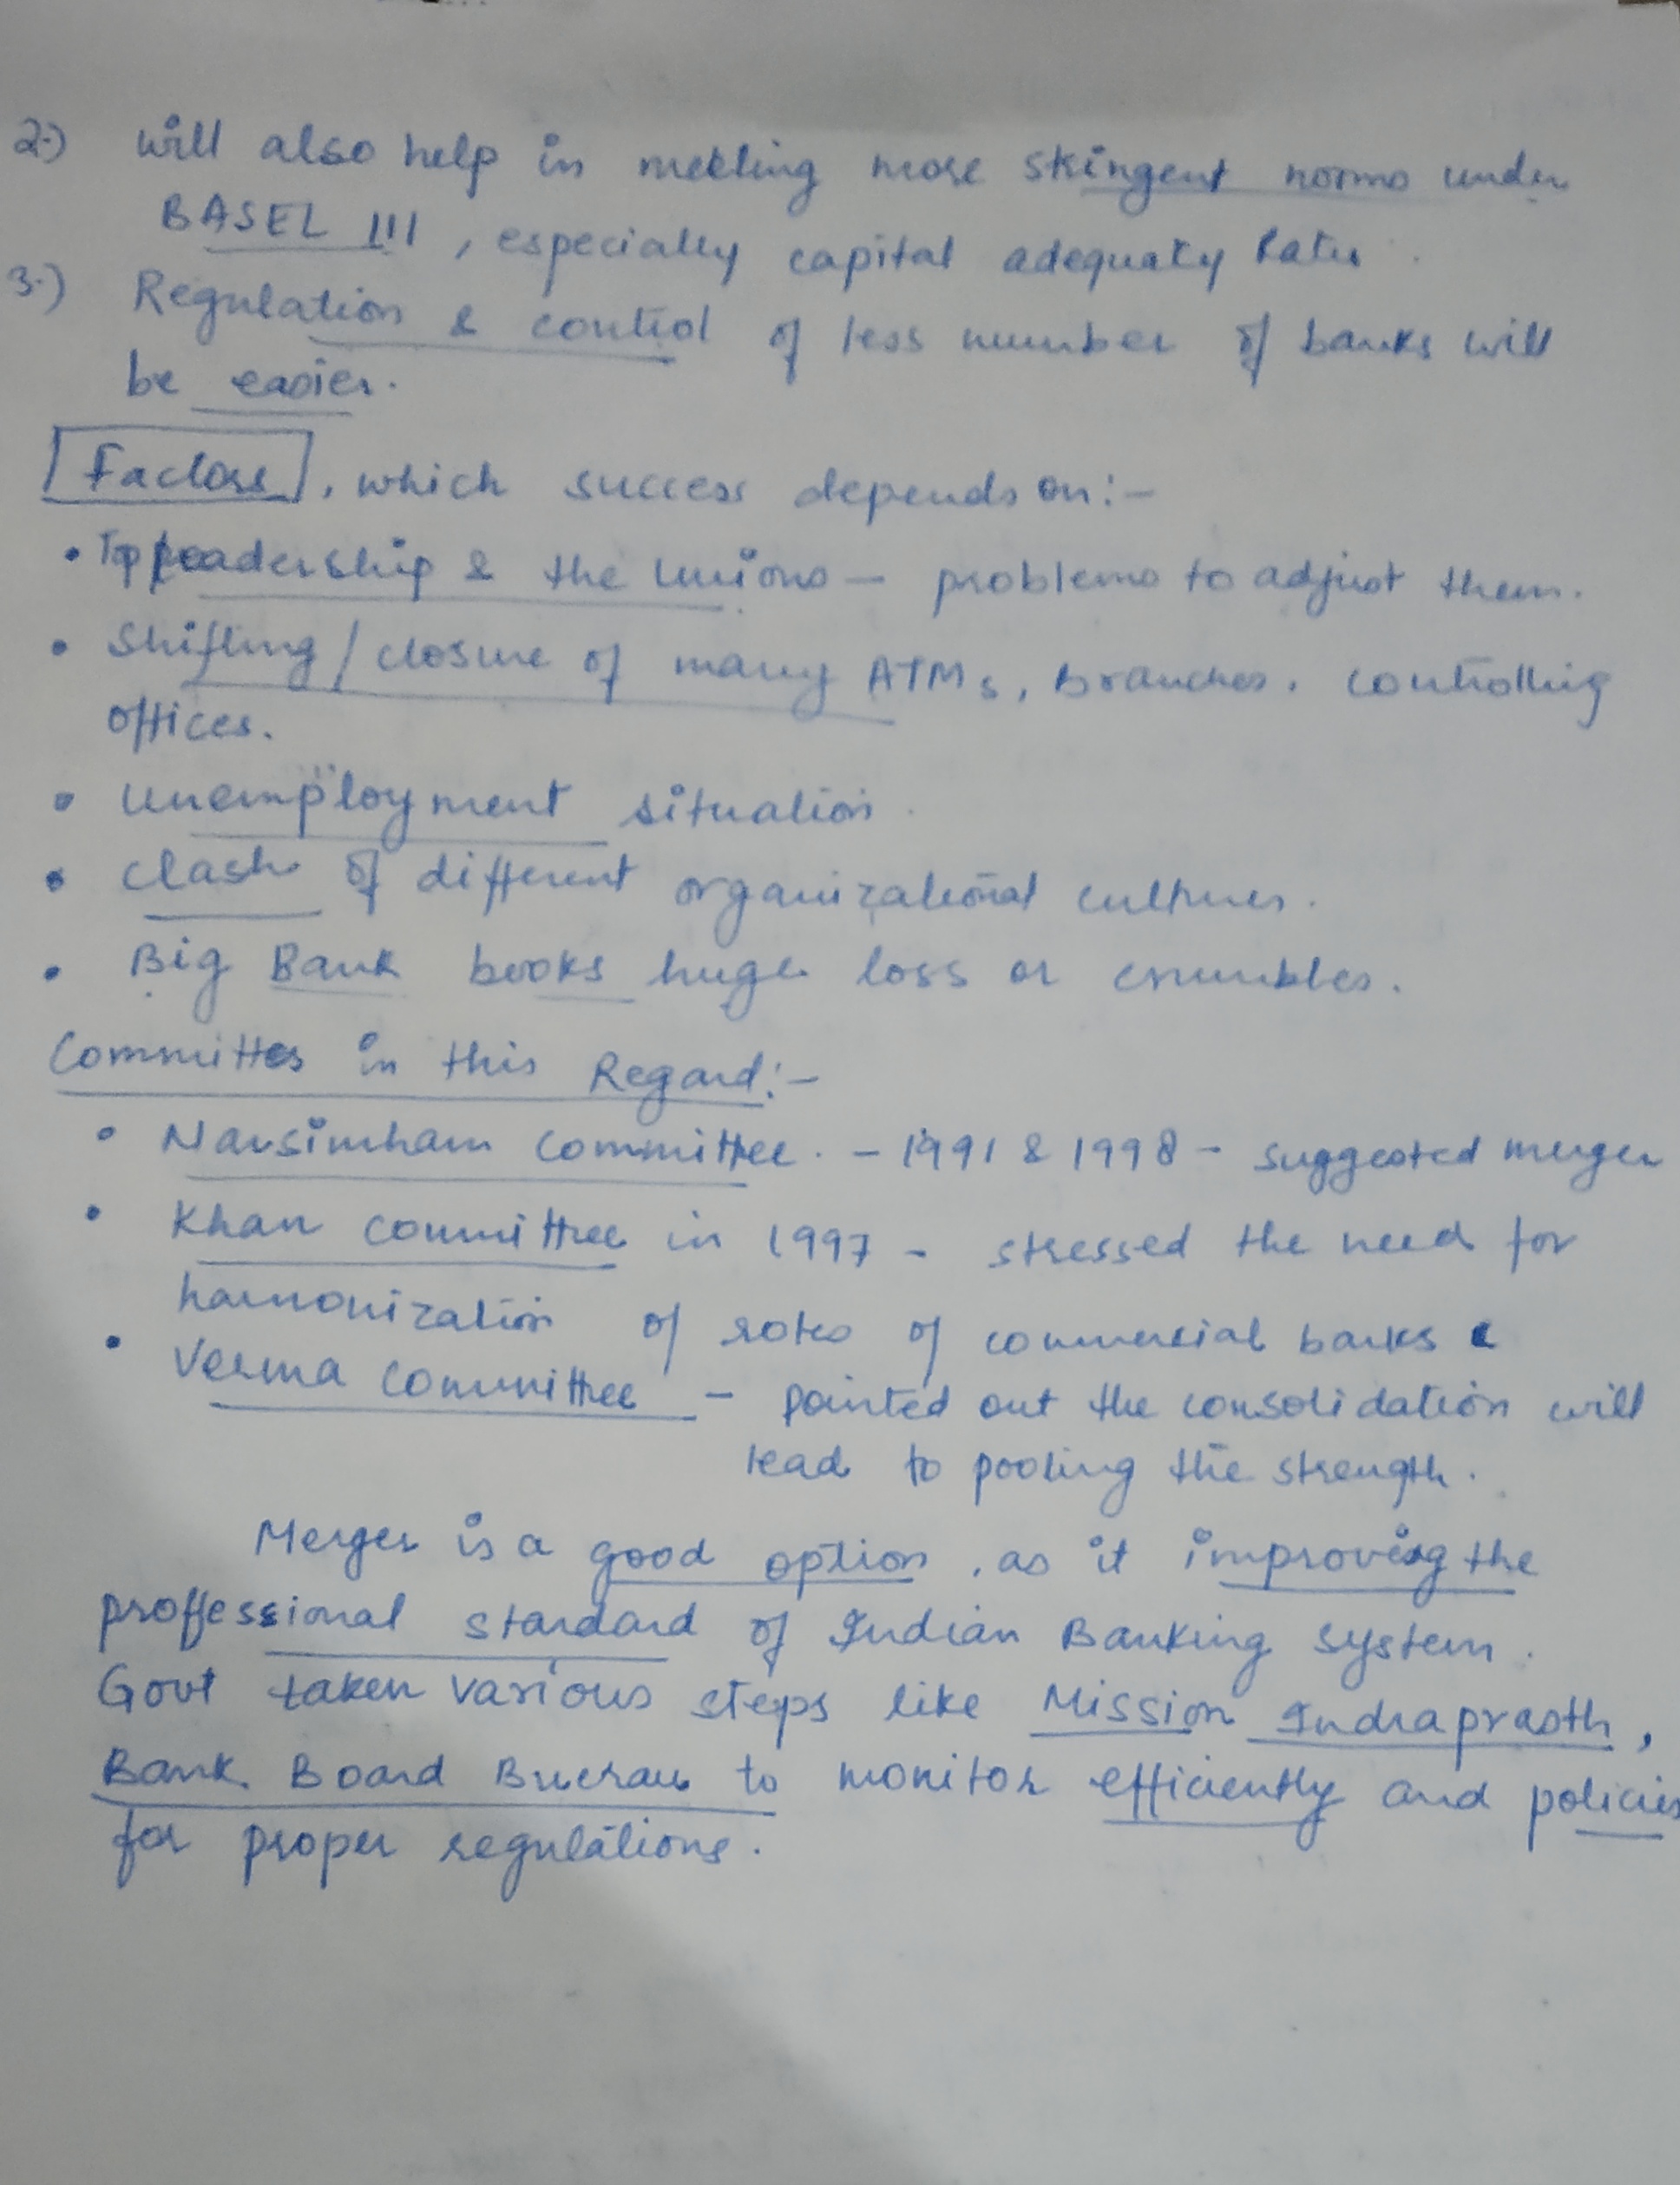 2.) will also help in meeting more stringent norms under
BASEL III, especially capital adequaty Rates.
3.) Regulation & control of less number of banks will
be easier.
Factors, which success depends on:-
• Top leadership & the Unions - problems to adjust them.
• Shifting / closure of many ATMs, Branches, controlling
offices.
• Unemployment situation.
• Clash of different organizational cultures.
• Big Bank books huge loss or crumbles.
Committes in this Regard:-
• Narsimham Committee. - 1991 & 1998 - suggested merger
• Khan committee in 1997 - stressed the need for
harmonization of roles of commercial banks
• Verma Committee - pointed out the consolidation will
lead to pooling the strength.
Merger is a good option, as it improving the
proffessional standard of Indian Banking system.
Govt taken various steps like Mission Indraprasth,
Bank Board Bucrau to monitor efficiently and policies
for proper regulations.